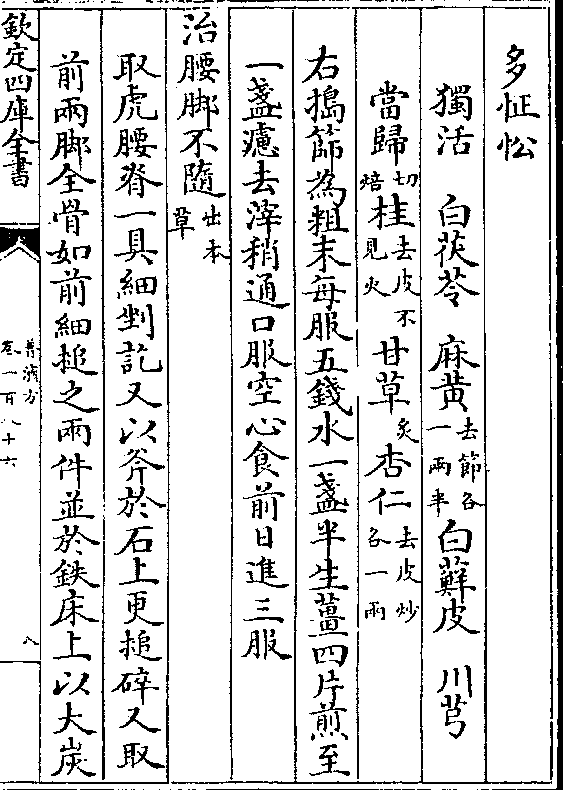 多怔忪
獨活　白茯苓　麻黄去節各一兩半白蘚皮　川芎
當歸切焙桂去皮不見火甘草炙杏仁去皮炒各一兩
右搗篩為粗末每服五錢水一盞半生薑四片煎至
一盞濾去滓稍通口服空心食前日進三服
治腰脚不隨出本草
取虎腰脊一具細剉訖又以斧於石上更搥碎又取
前兩脚全骨如前細搥之兩件並於鉄床上以大炭
欽定四庫全書
普濟方
卷一百八十六
八